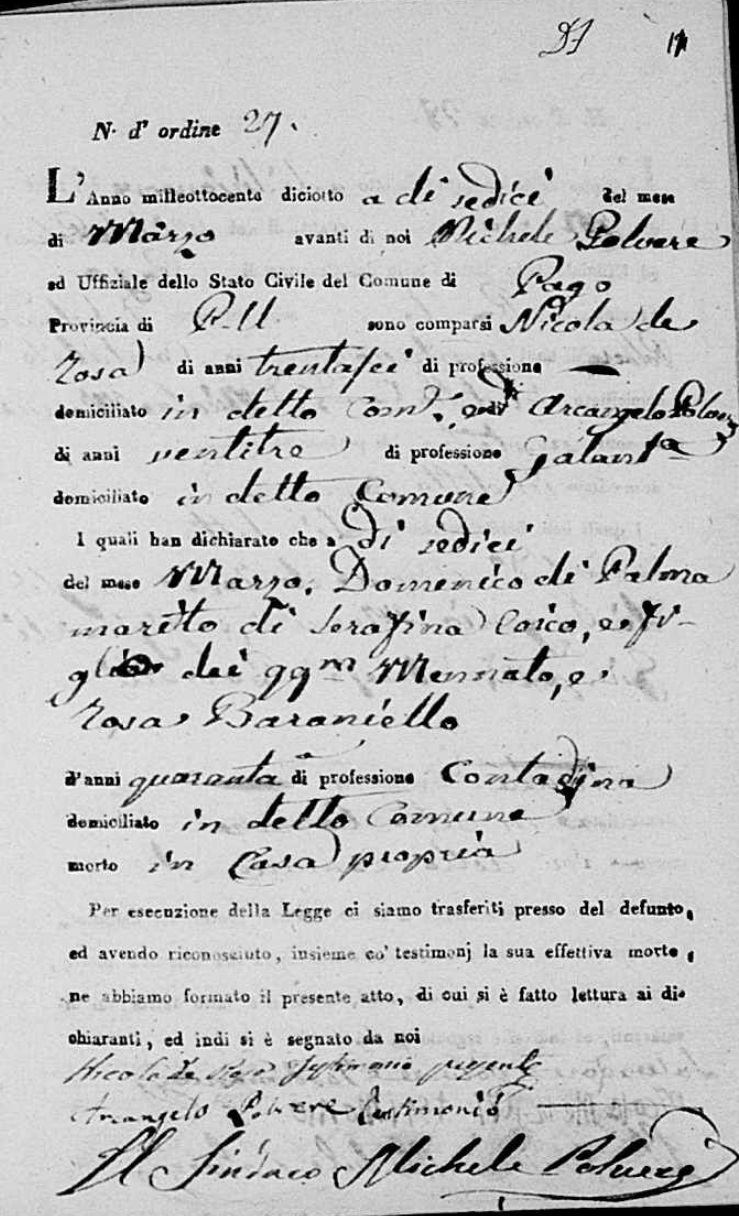 N. d' ordine 27.
L'Anno milleottocento diciotto a dì sedici del mese
di Marzo avanti di noi Michele Polvere
ed Uffiziale dello Stato Civile del Comune di Pago
Provincia di P. U sono comparsi Nicola de
Rosa di anni trentasei di professione —
domiciliato in detto Com.e, e di Arcangelo Polvere
di anni ventitre di professione Galant.a
domiciliato in detto Comune
I quali han dichiarato che a Dì sedici
del mese Marzo, Domenico di Palma
marito di Serafina Coico, e fi-
glio dei qq.m Mennato, e
Rosa Baraniello
d'anni quaranta di professione Contadina
domiciliato in detto Comune
morto in Casa propria
Per esecuzione della Legge ci siamo trasferiti presso del defunto,
ed avendo riconosciuto, insieme co' testimonj la sua effettiva morte,
ne abbiamo formato il presente atto, di cui si è fatto lettura ai di-
chiaranti, ed indi si è segnato da noi
Nicola de Rosa Testimonio presente
Arcangelo Polvere Testimonio
Il Sindaco Michele Polvere